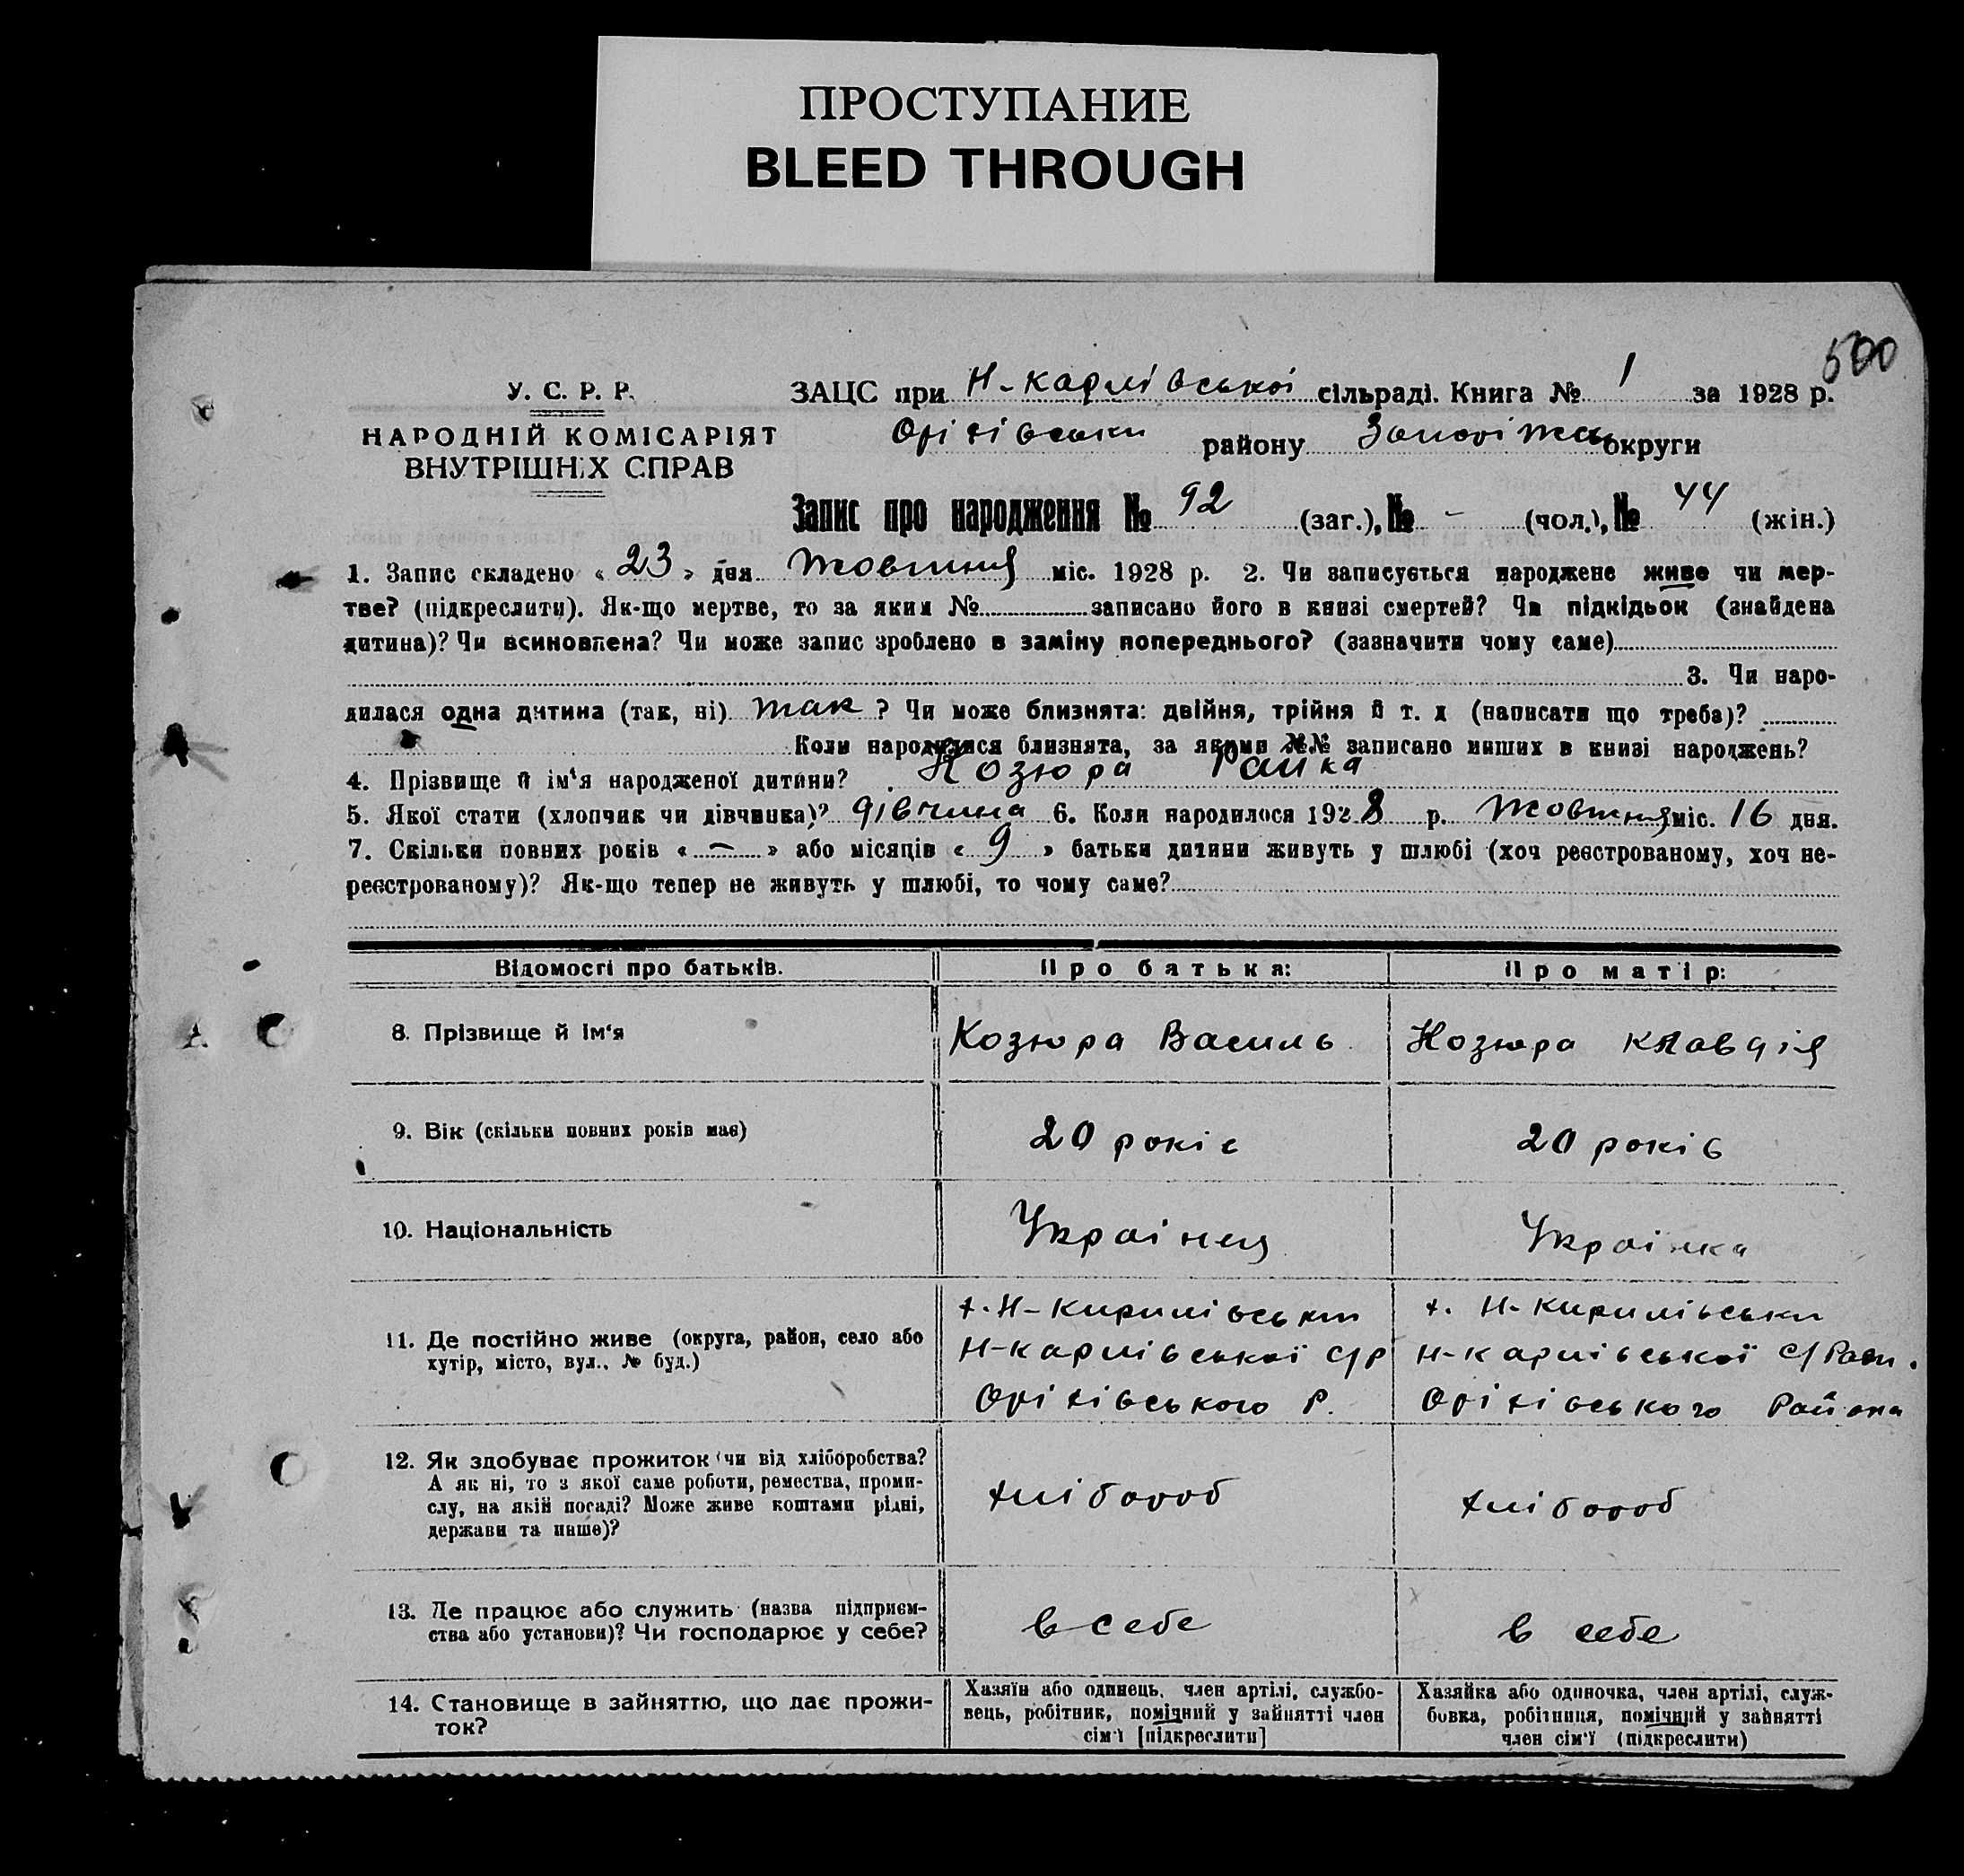 ПРОСТУПАНИЕ
BLEED THROUGH
500
У. С. Р. Р.
НАРОДНІЙ КОМІСАРІЯТ
ВНУТРІШНІХ СПРАВ
ЗАЦС при Н-карлівської сільраді. Книга № 1 за 1928 р.
Оріхівськи району округи
Запис про народження № 92 (заг.), № - (чол.), № 44 (жін.)
1. Запис складено « 23 » дня Жовтня міс. 1928 р. 2. Чи записується народжене живе чи мер-
тве? (підкреслити). Як-що мертве, то за яким № записано його в книзі смертей? Чи підкідьок (знайдена
дитина)? Чи всиновлена? Чи може запис зроблено в заміну попереднього? (зазначити чому саме)
3. Чи наро-
дилася одна дитина (так, ні) так ? Чи може близнята: двійня, трійня й т. д (написати що треба)?
Коли народилися близнята, за якими №№ записано инших в книзі народжень?
4. Прізвище й ім‘я народженої дитини? Козюра Раика
5. Якої стати (хлопчик чи дівчинка)? дівчина 6. Коли народилося 1928 р. Жовтня міс. 16 дня.
7. Скільки повних років « — » або місяців « 9 » батьки дитини живуть у шлюбі (хоч реєстрованому, хоч не-
реєстрованому)? Як-що тепер не живуть у шлюбі, то чому саме?
Відомості про батьків. Про батька: Про матір:
8. Прізвище й ім‘я Козюра Василь Козюра Клавдія
9. Вік (скільки повних років має) 20 років 20 років
10. Національність Українец Українка
11. Де постійно живе (округа, район, село або
хутір, місто, вул., № буд.)
х. Н-Кирилівськи
Н-карлівської с/р
Оріхівського Р.
х. Н-Кирилівськи
Н-карлівської с/Ради.
Оріхівського Района
12. Як здобуває прожиток (чи від хліборобства?
А як ні, то з якої саме роботи, ремества, проми-
слу, на якій посаді? Може живе коштами рідні,
держави та инше)?
хлібороб хлібороб
13. Де працює або служить (назва підприєм-
ства або установи)? Чи господарює у себе?
в себе в себе
14. Становище в зайняттю, що дає прожи-
ток?
Хазяїн або одинець, член артілі, службо-
вець, робітник, помічний у зайнятті член
сім‘ї [підкреслити]
Хазяйка або одиночка, член артілі, служ-
бовка, робітниця, помічний у зайнятті
член сім‘ї (підкреслити)